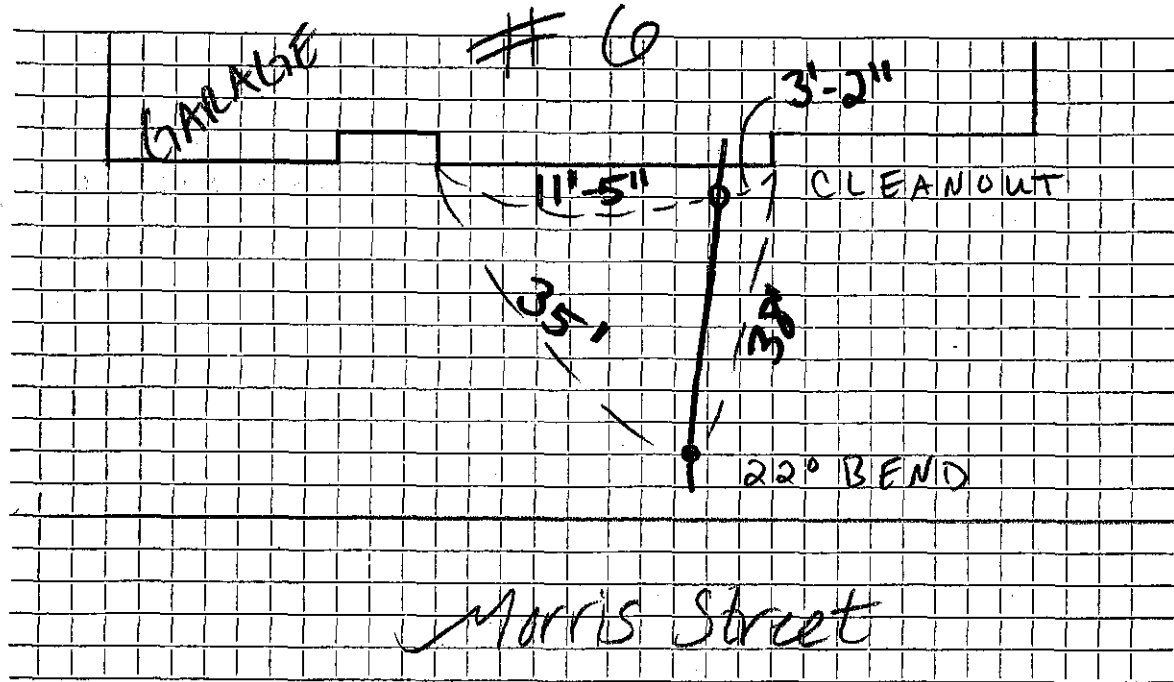 # 6
GARAGE
3'-2"
11'-5"
CLEANOUT
35'
22° BEND
Morris Street